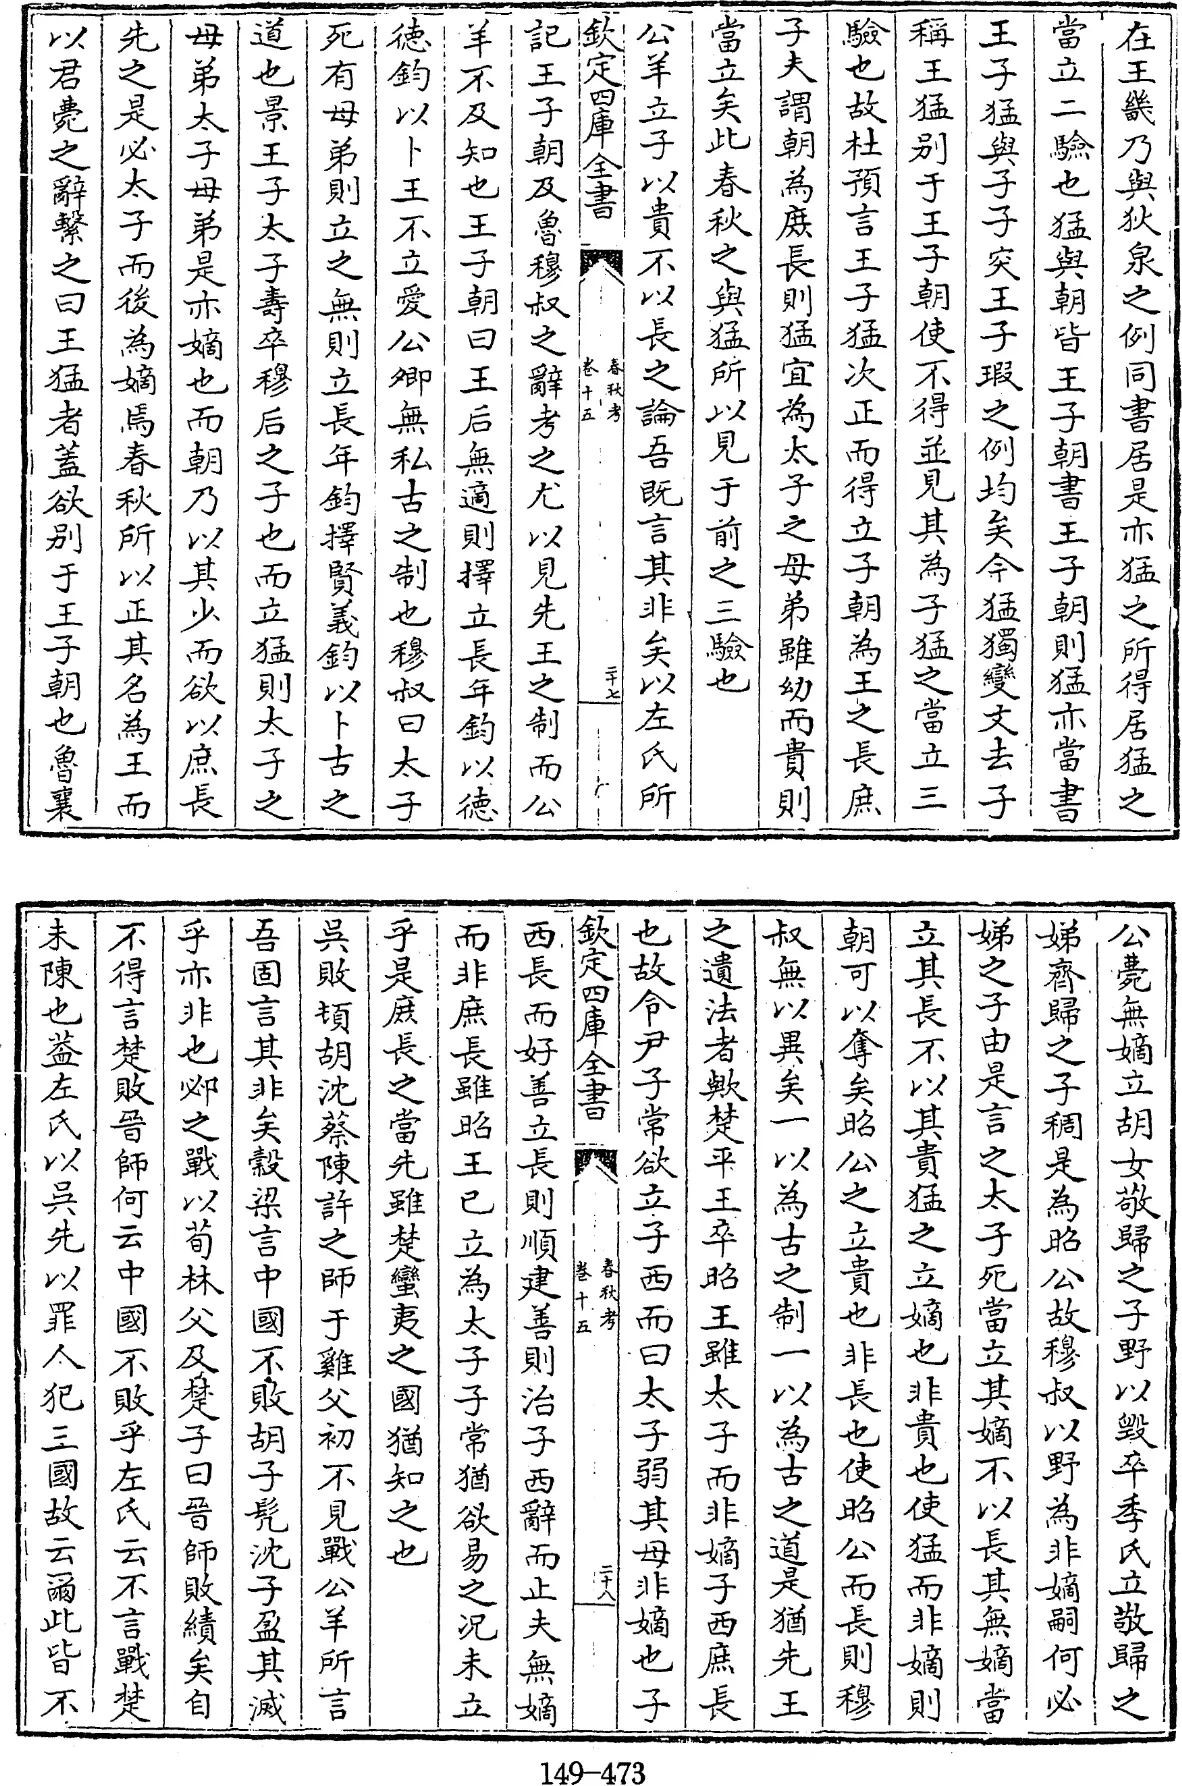 在王畿乃與狄泉之例同書居是亦猛之所得居猛之
當立二驗也猛與朝皆王子朝書王子朝則猛亦當書
王子猛與子子突王子瑕之例均矣今猛獨變文去子
稱王猛别于王子朝使不得並見其為子猛之當立三
驗也故杜預言王子猛次正而得立子朝為王之長庶
子夫謂朝為庻長則猛宜為太子之母弟雖幼而貴則
當立矣此春秋之與猛所以見于前之三驗也
公羊立子以貴不以長之論吾既言其非矣以左氏所
欽定四庫全書
春秋考
卷十五
二十七
記王子朝及魯穆叔之辭考之尤以見先王之制而公
羊不及知也王子朝曰王后無適則擇立長年鈞以德
德鈞以卜王不立愛公卿無私古之制也穆叔曰太子
死有母弟則立之無則立長年鈞擇賢義鈞以卜古之
道也景王子太子壽卒穆后之子也而立猛則太子之
母弟太子母弟是亦嫡也而朝乃以其少而欲以庶長
先之是必太子而後為嫡焉春秋所以正其名為王而
以君薨之辭繫之曰王猛者蓋欲别于王子朝也魯襄
公薨無嫡立胡女敬歸之子野以毀卒季氏立敬歸之
娣齊歸之子稠是為昭公故穆叔以野為非嫡嗣何必
娣之子由是言之太子死當立其嫡不以長其無嫡當
立其長不以其貴猛之立嫡也非貴也使猛而非嫡則
朝可以奪矣昭公之立貴也非長也使昭公而長則穆
叔無以異矣一以為古之制一以為古之道是猶先王
之遺法者歟楚平王卒昭王雖太子而非嫡子西庶長
也故令尹子常欲立子西而曰太子弱其母非嫡也子
欽定四庫全書
春秋考
卷十五
二十八
西長而好善立長則順建善則治子西辭而止夫無嫡
而非庶長雖昭王已立為太子子常猶欲易之况未立
乎是庻長之當先雖楚蠻夷之國猶知之也
吳敗頓胡沈蔡陳許之師于雞父初不見戰公羊所言
吾固言其非矣穀梁言中國不敗胡子髡沈子盈其滅
乎亦非也邲之戰以荀林父及楚子曰晉師敗績矣自
不得言楚敗晉師何云中國不敗乎左氏云不言戰楚
未陳也葢左氏以吳先以罪人犯三國故云爾此皆不
149-473